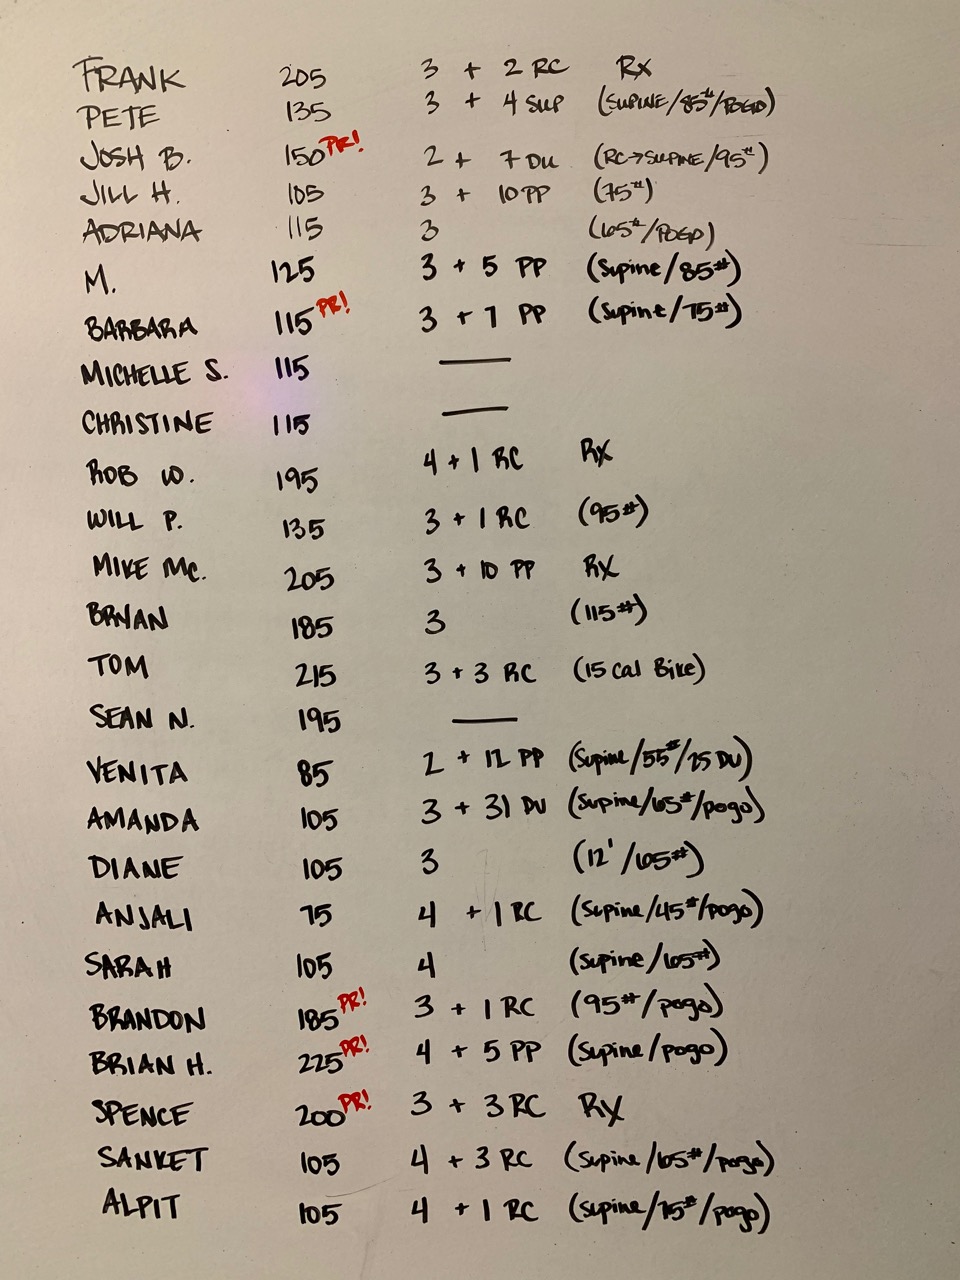 FRANK 205 3 + 2 RC Rx
PETE 135 3 + 4 SUP (SUPINE/85#/POGO)
JOSH B. 150 PR! 2 + 7 DU (RC→SUPINE/95#)
JILL H. 105 3 + 10 PP (75#)
ADRIANA 115 3 (65#/POGO)
M. 125 3 + 5 PP (Supine/85#)
BARBARA 115 PR! 3 + 7 PP (Supine/75#)
MICHELLE S. 115 —
CHRISTINE 115 —
ROB W. 195 4 + 1 RC Rx
WILL P. 135 3 + 1 RC (95#)
MIKE MC. 205 3 + 10 PP Rx
BRYAN 185 3 (115#)
TOM 215 3 + 3 RC (15 Cal Bike)
SEAN N. 195 —
VENITA 85 2 + 12 PP (Supine/55#/25 DU)
AMANDA 105 3 + 31 DU (Supine/65#/pogo)
DIANE 105 3 (12'/65#)
ANJALI 75 4 + 1 RC (Supine/45#/pogo)
SARAH 105 4 (Supine/65#)
BRANDON 185 PR! 3 + 1 RC (95#/pogo)
BRIAN H. 225 PR! 4 + 5 PP (Supine/pogo)
SPENCE 200 PR! 3 + 3 RC Rx
SANKET 105 4 + 3 RC (Supine/65#/pogo)
ALPIT 105 4 + 1 RC (Supine/75#/pogo)